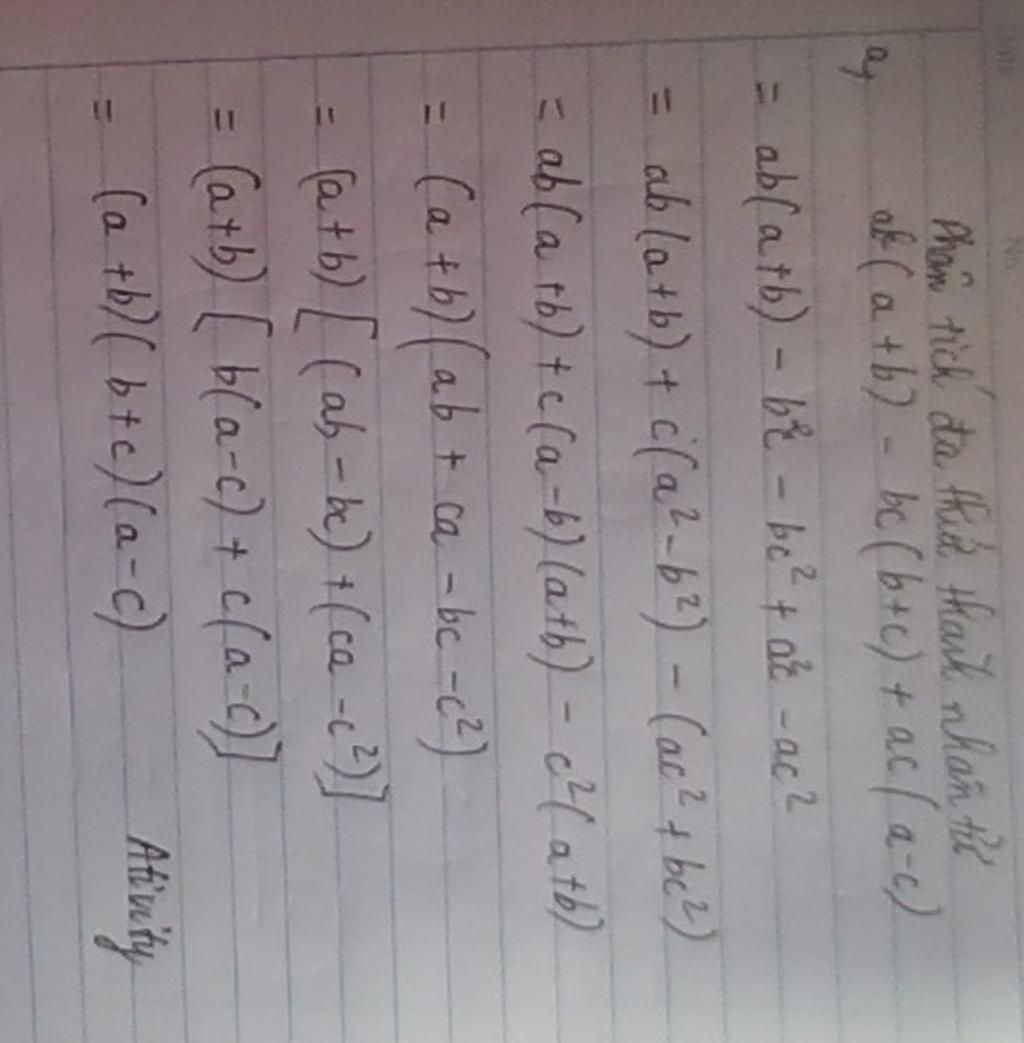 Phân tích đa thức thành nhân tử
a, ab(a+b) - bc(b+c) + ac(a-c)
= ab(a+b) - b²c - bc² + a²c - ac²
= ab(a+b) + c(a²-b²) - (ac²+bc²)
= ab(a+b) + c(a-b)(a+b) - c²(a+b)
= (a+b)(ab + ca - bc - c²)
= (a+b)[(ab-bc)+(ca-c²)]
= (a+b)[b(a-c)+c(a-c)]
= (a+b)(b+c)(a-c)